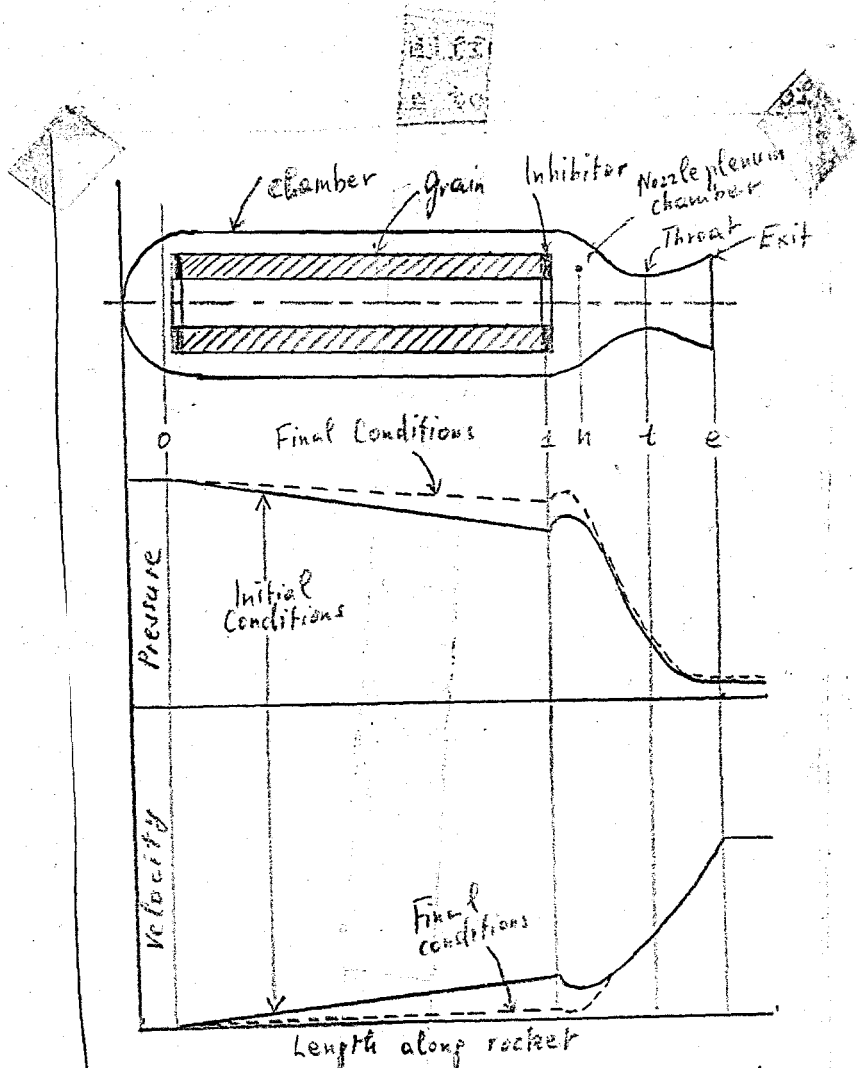 chamber
grain
Inhibitor
Nozzle plenum
chamber
Throat
Exit
0
1
n
t
e
Final Conditions
Pressure
Initial
Conditions
Velocity
Final
conditions
Length along rocket